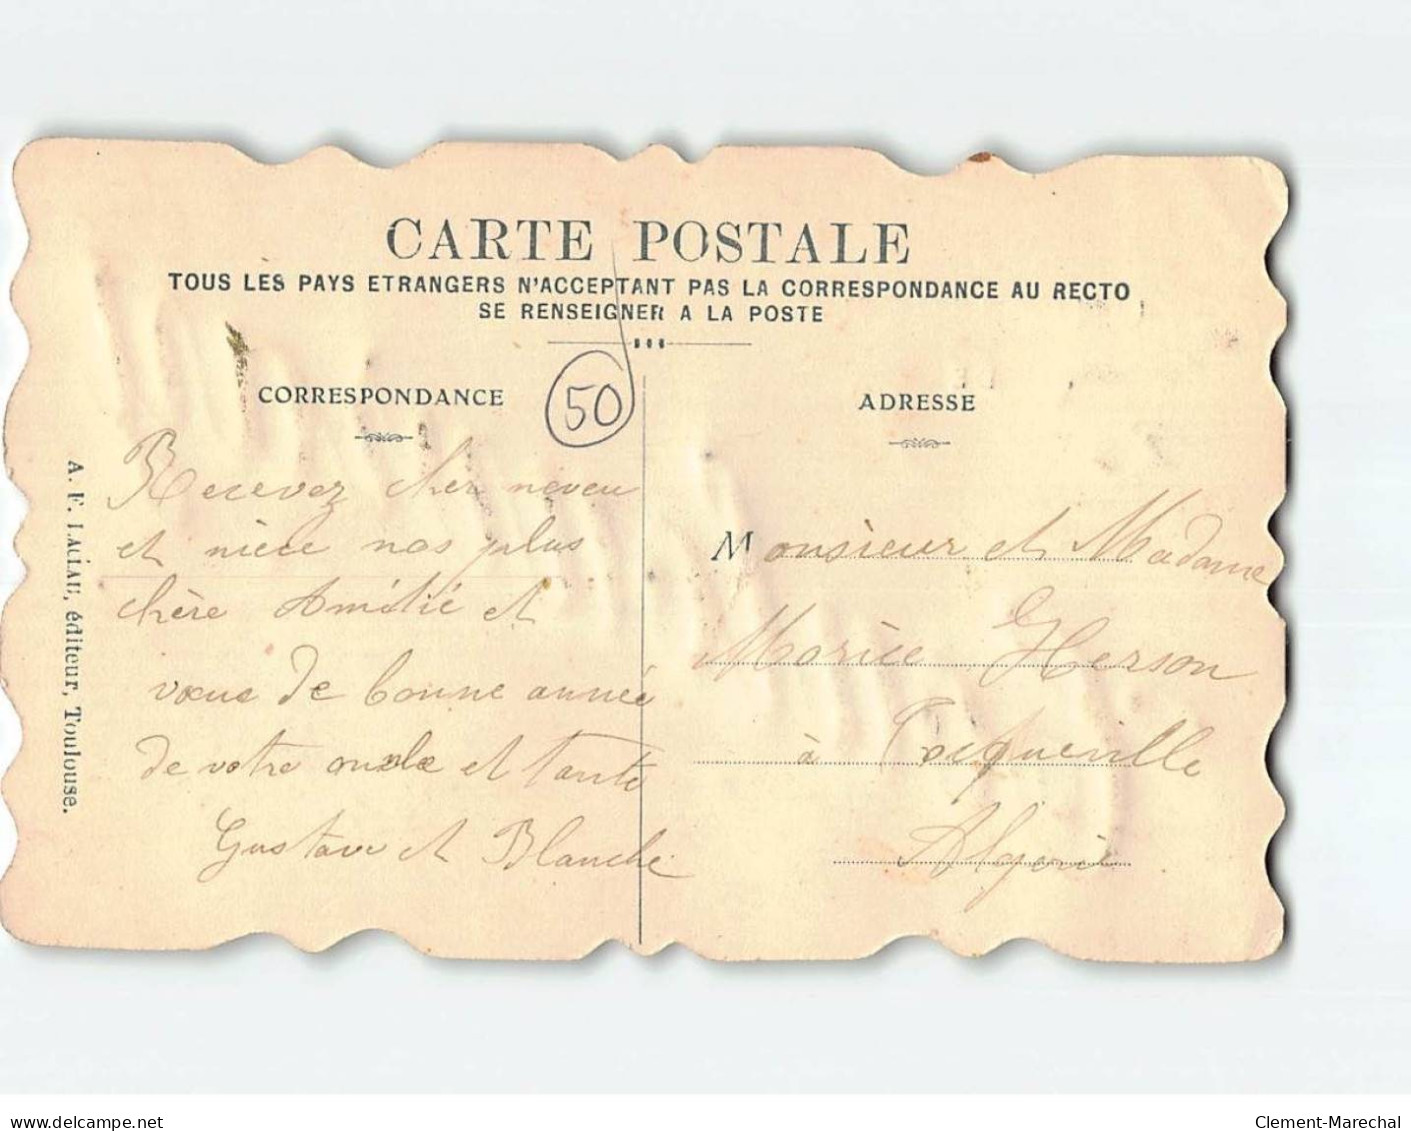 CARTE POSTALE
TOUS LES PAYS ETRANGERS N'ACCEPTANT PAS LA CORRESPONDANCE AU RECTO
SE RENSEIGNER A LA POSTE
CORRESPONDANCE
50
ADRESSE
A. F. LACLAU, éditeur, Toulouse.
Recevez cher neveu
et nièce nos plus
chère Amitié et
vœux de bonne année
de votre oncle et tante
Gustave et Blanche
Monsieur et Madame
Gerson
à Tocqueville
Algérie
delcampe.net
Clement-Marechal